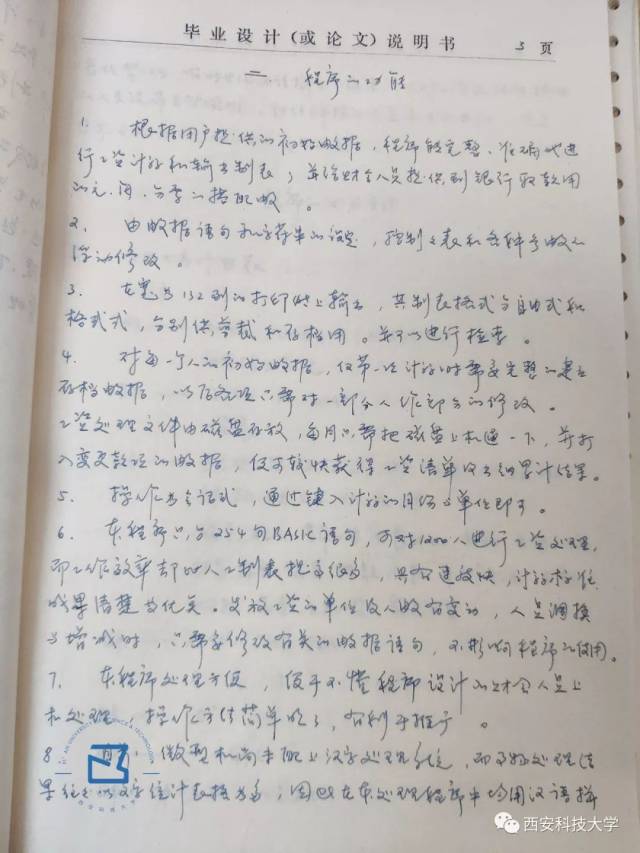 毕业设计(或论文)说明书 3 页
二 程序的功能
1. 根据用户提供的初始数据,程序能完整、准确地进
行工资计算和输出制表;并给财会人员提供到银行取款用
的元、角、分等的搭配数。
2. 由数据语句和字符串的设定,控制立表和各种参数的
修改。
3. 在宽为132列的打印纸上输出,其制表格式分自由式和
格式式,分别供剪裁和存档用。并可以进行检查。
4. 对每一个人的初始数据,仅第一次计算时需要完整的建立
存档数据,以后各项只需对一部分人作部分的修改。
工资处理文件由磁盘存放,每月只需把磁盘上机通一下,并打
入变更款项的数据,便可较快获得工资清单及各细累计结果。
5. 操作为会话式,通过键入计算的月份与单位即可。
6. 本程序只有254句BASIC语句,可对1200人进行工资处理,
而工作效率却比人工制表提高很多,具有速度快,计算标准,
成果清楚等优点。发放工资的单位及人数有变动,人员调换
与增减时,只需要修改有关的数据语句,不影响程序的使用。
7. 本程序处理方便,便于不懂程序设计的财会人员上
机处理,操作方法简单明了,有利于推广。
8. 目前,微型机尚未配上汉字处理系统,而
果往往以文字统计表格为多,因此在本处理程序中均用汉语拼
西安科技大学